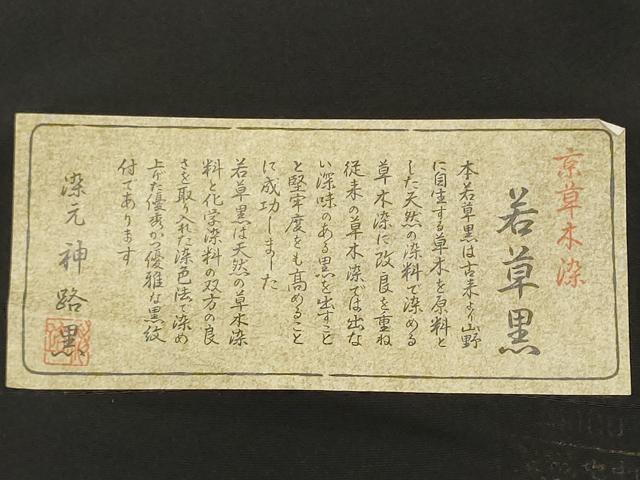 京草木染
若草黒
本若草黒は古来より山野
に自生する草木を原料と
した天然の染料で染める
草木染に改良を重ね
従来の草木染では出な
い深味のある黒を出すこと
と堅牢度をも高めること
に成功しました
若草黒は天然の草木染
料と化学染料の双方の良
さを取り入れた染色法で染め
上げた優秀かつ優雅な黒紋
付であります
染元 神路黒